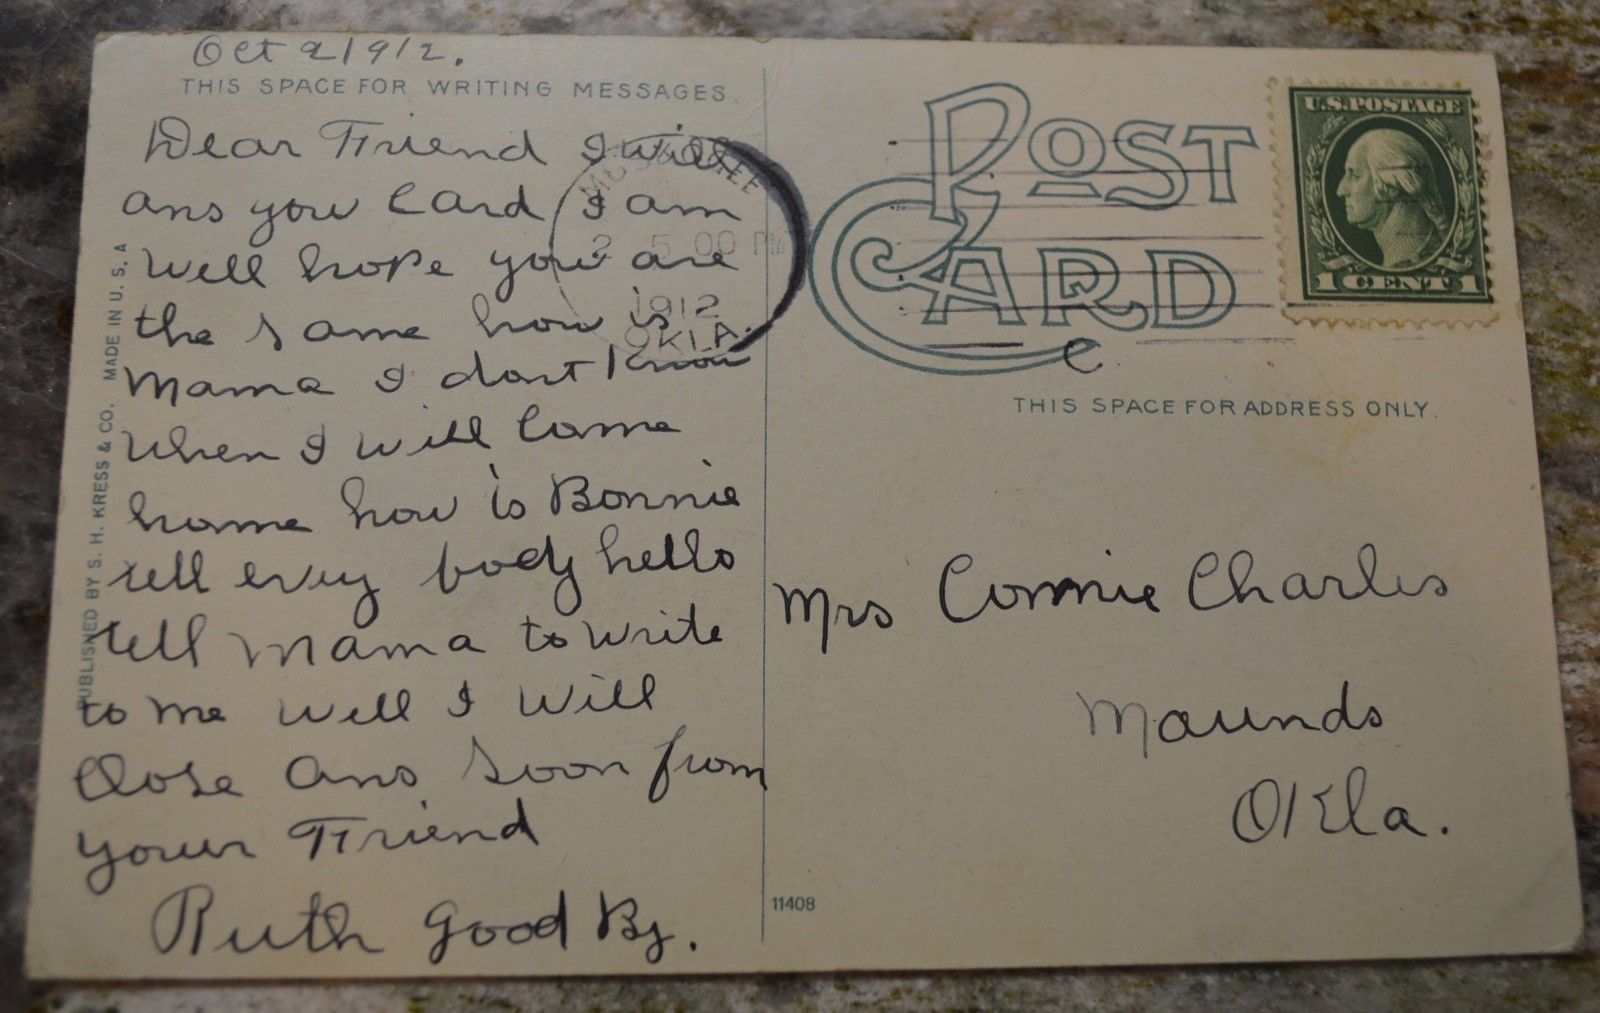 Oct 2 1912.
THIS SPACE FOR WRITING MESSAGES.
Dear Friend I will
ans your Card I am
well hope you are
the same how is
Mama I dont know
when I will Come
home how is Bonnie
tell evry body hello
tell Mama to write
to me well I will
Close ans soon from
your Friend
Ruth Good By.
PUBLISHED BY S. H. KRESS & CO. MADE IN U. S. A
MUSKOGEE
2 5 00 PM
1912
OKLA.
POST
CARD
U.S. POSTAGE
1 CENT 1
THIS SPACE FOR ADDRESS ONLY.
Mrs Connie Charles
Mounds
Okla.
11408